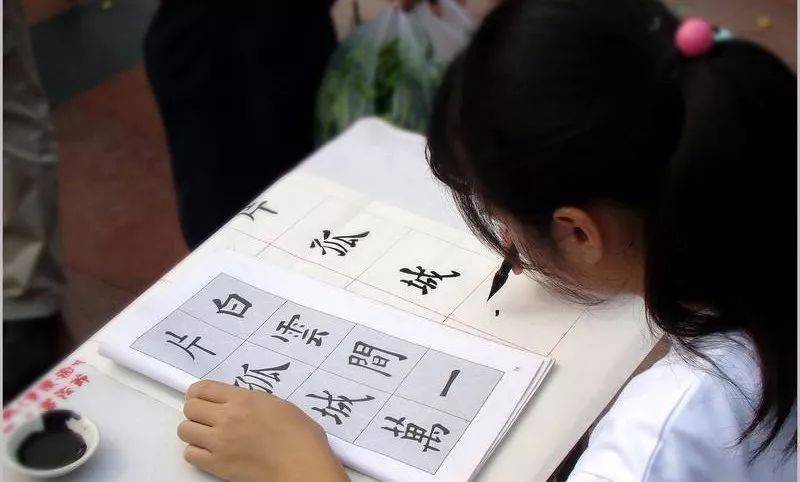 片孤城
白雲間一
片孤城萬